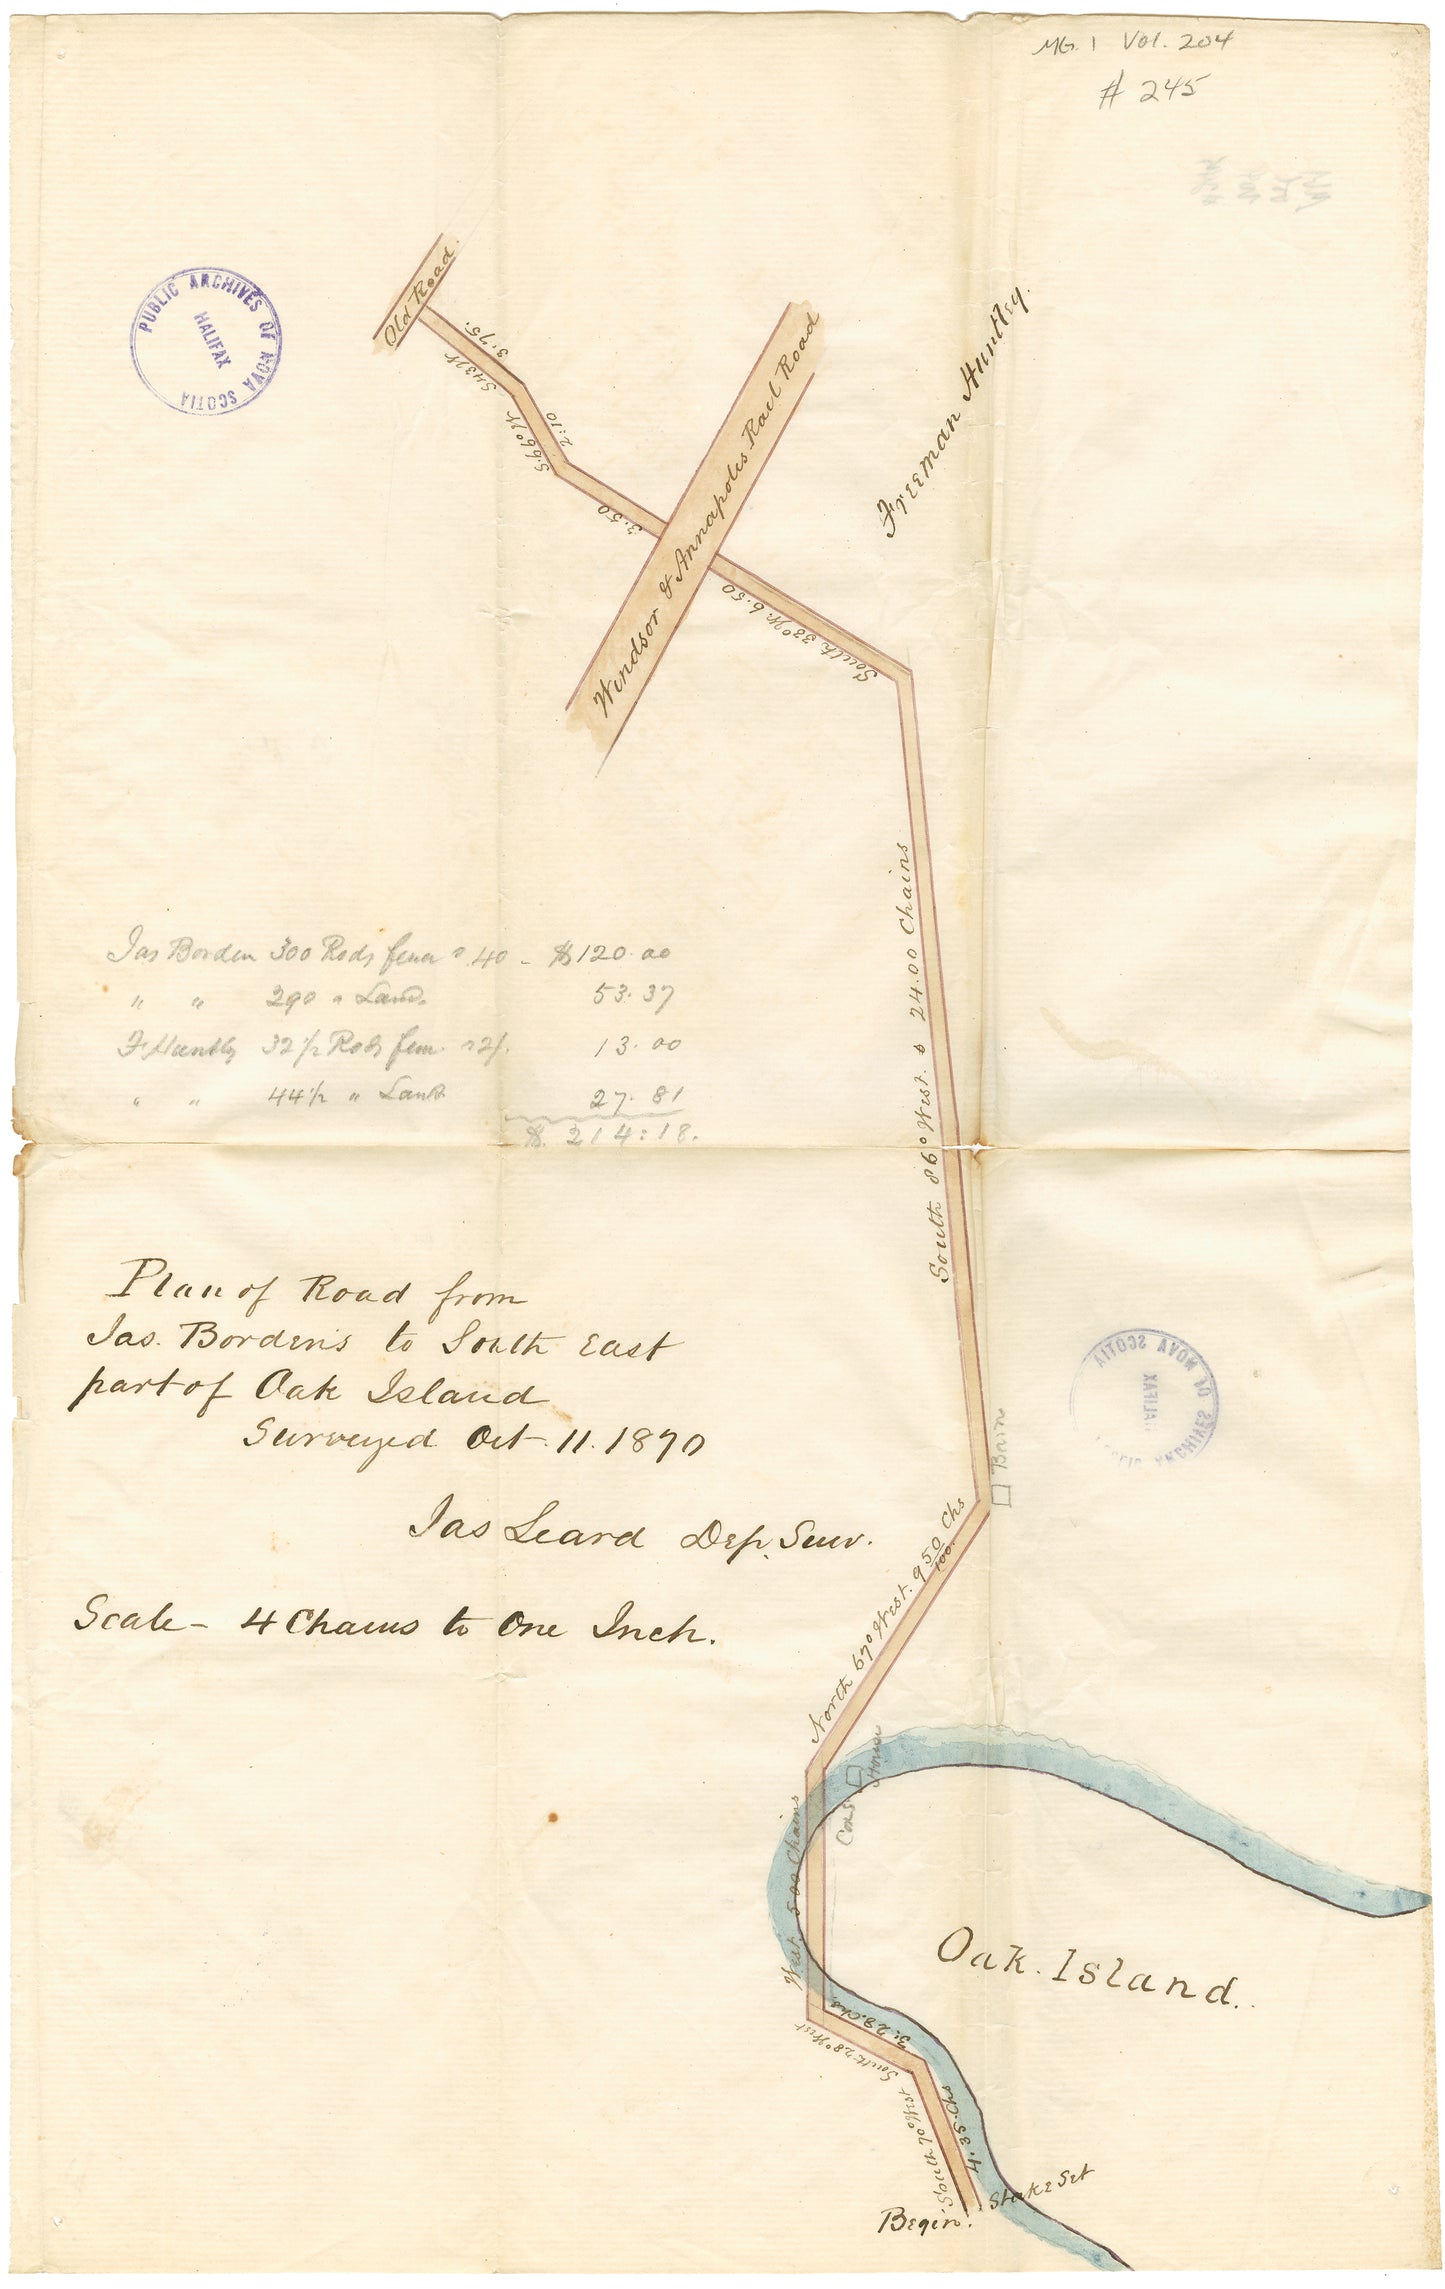 MG. 1 Vol. 204
# 245
PUBLIC ARCHIVES OF NOVA SCOTIA
HALIFAX
Old Road.
3.75.
S43W
2:10
S.66°W
3.50
Windsor & Annapolis Rail Road
Freeman Huntley.
South 33°W. 6.50
South 86° West. 24.00 Chains
Jas Borden 300 Rods fence 40 - $120.00
" " 290 " Land. 53.37
F Huntly 32 1/2 Rods fence 2/. 13.00
" " 44 1/2 " Land 27.81
$. 214:18.
Plan of Road from
Jas. Borden's to South East
part of Oak Island
Surveyed Oct. 11. 1870
Jas Leard Dep. Surv.
Scale - 4 Chains to One Inch.
PUBLIC ARCHIVES OF NOVA SCOTIA
HALIFAX
Barn
North 67° West. 9 50/100 Chs
Coxs House
West. 5.00 Chains
Oak. Island.
3:28.Chs.
South 28° West
4.35.Chs
South 70° West
Stake Set
Begin.